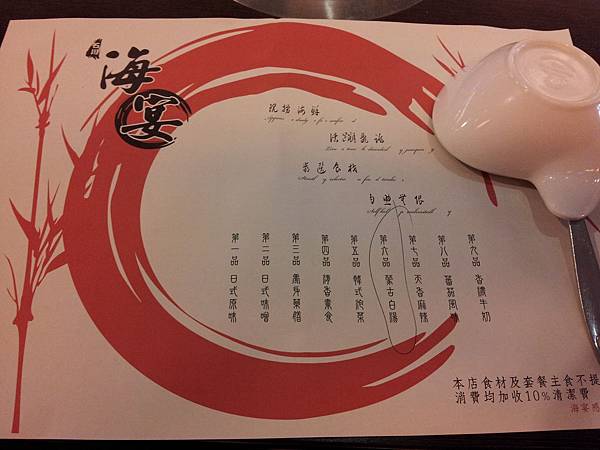 海宴
現撈海鮮
活蹦亂跳
嚴選食材
第一品 日式原味
第二品 日式味噌
第三品 養身藥膳
第四品 淨香素食
第五品 韓式泡菜
第六品 蒙古白湯
第七品 天香麻辣
第八品 蕃茄風味
第九品 香濃牛奶
本店食材及套餐主食不提
消費均加收10%清潔費
海宴感